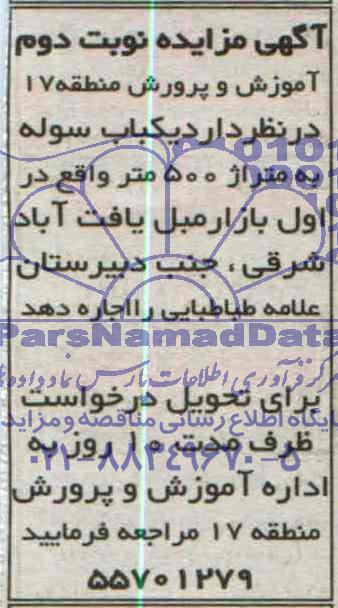 آگهی مزایده نوبت دوم
آموزش و پرورش منطقه ۱۷
درنظردارد یکباب سوله
به متراژ ۵۰۰ متر واقع در
اول بازار مبل یافت آباد
شرقی ، جنب دبیرستان
علامه طباطبایی را اجاره دهد
ParsNamadData
مرکز فرآوری اطلاعات پارس نماد داده ها
برای تحویل درخواست
پایگاه اطلاع رسانی مناقصه و مزایده
ظرف مدت ۱۰ روز به
۰۲۱-۸۸۳۴۹۶۷۰-۵
اداره آموزش و پرورش
منطقه ۱۷ مراجعه فرمایید
۵۵۷۰۱۲۷۹